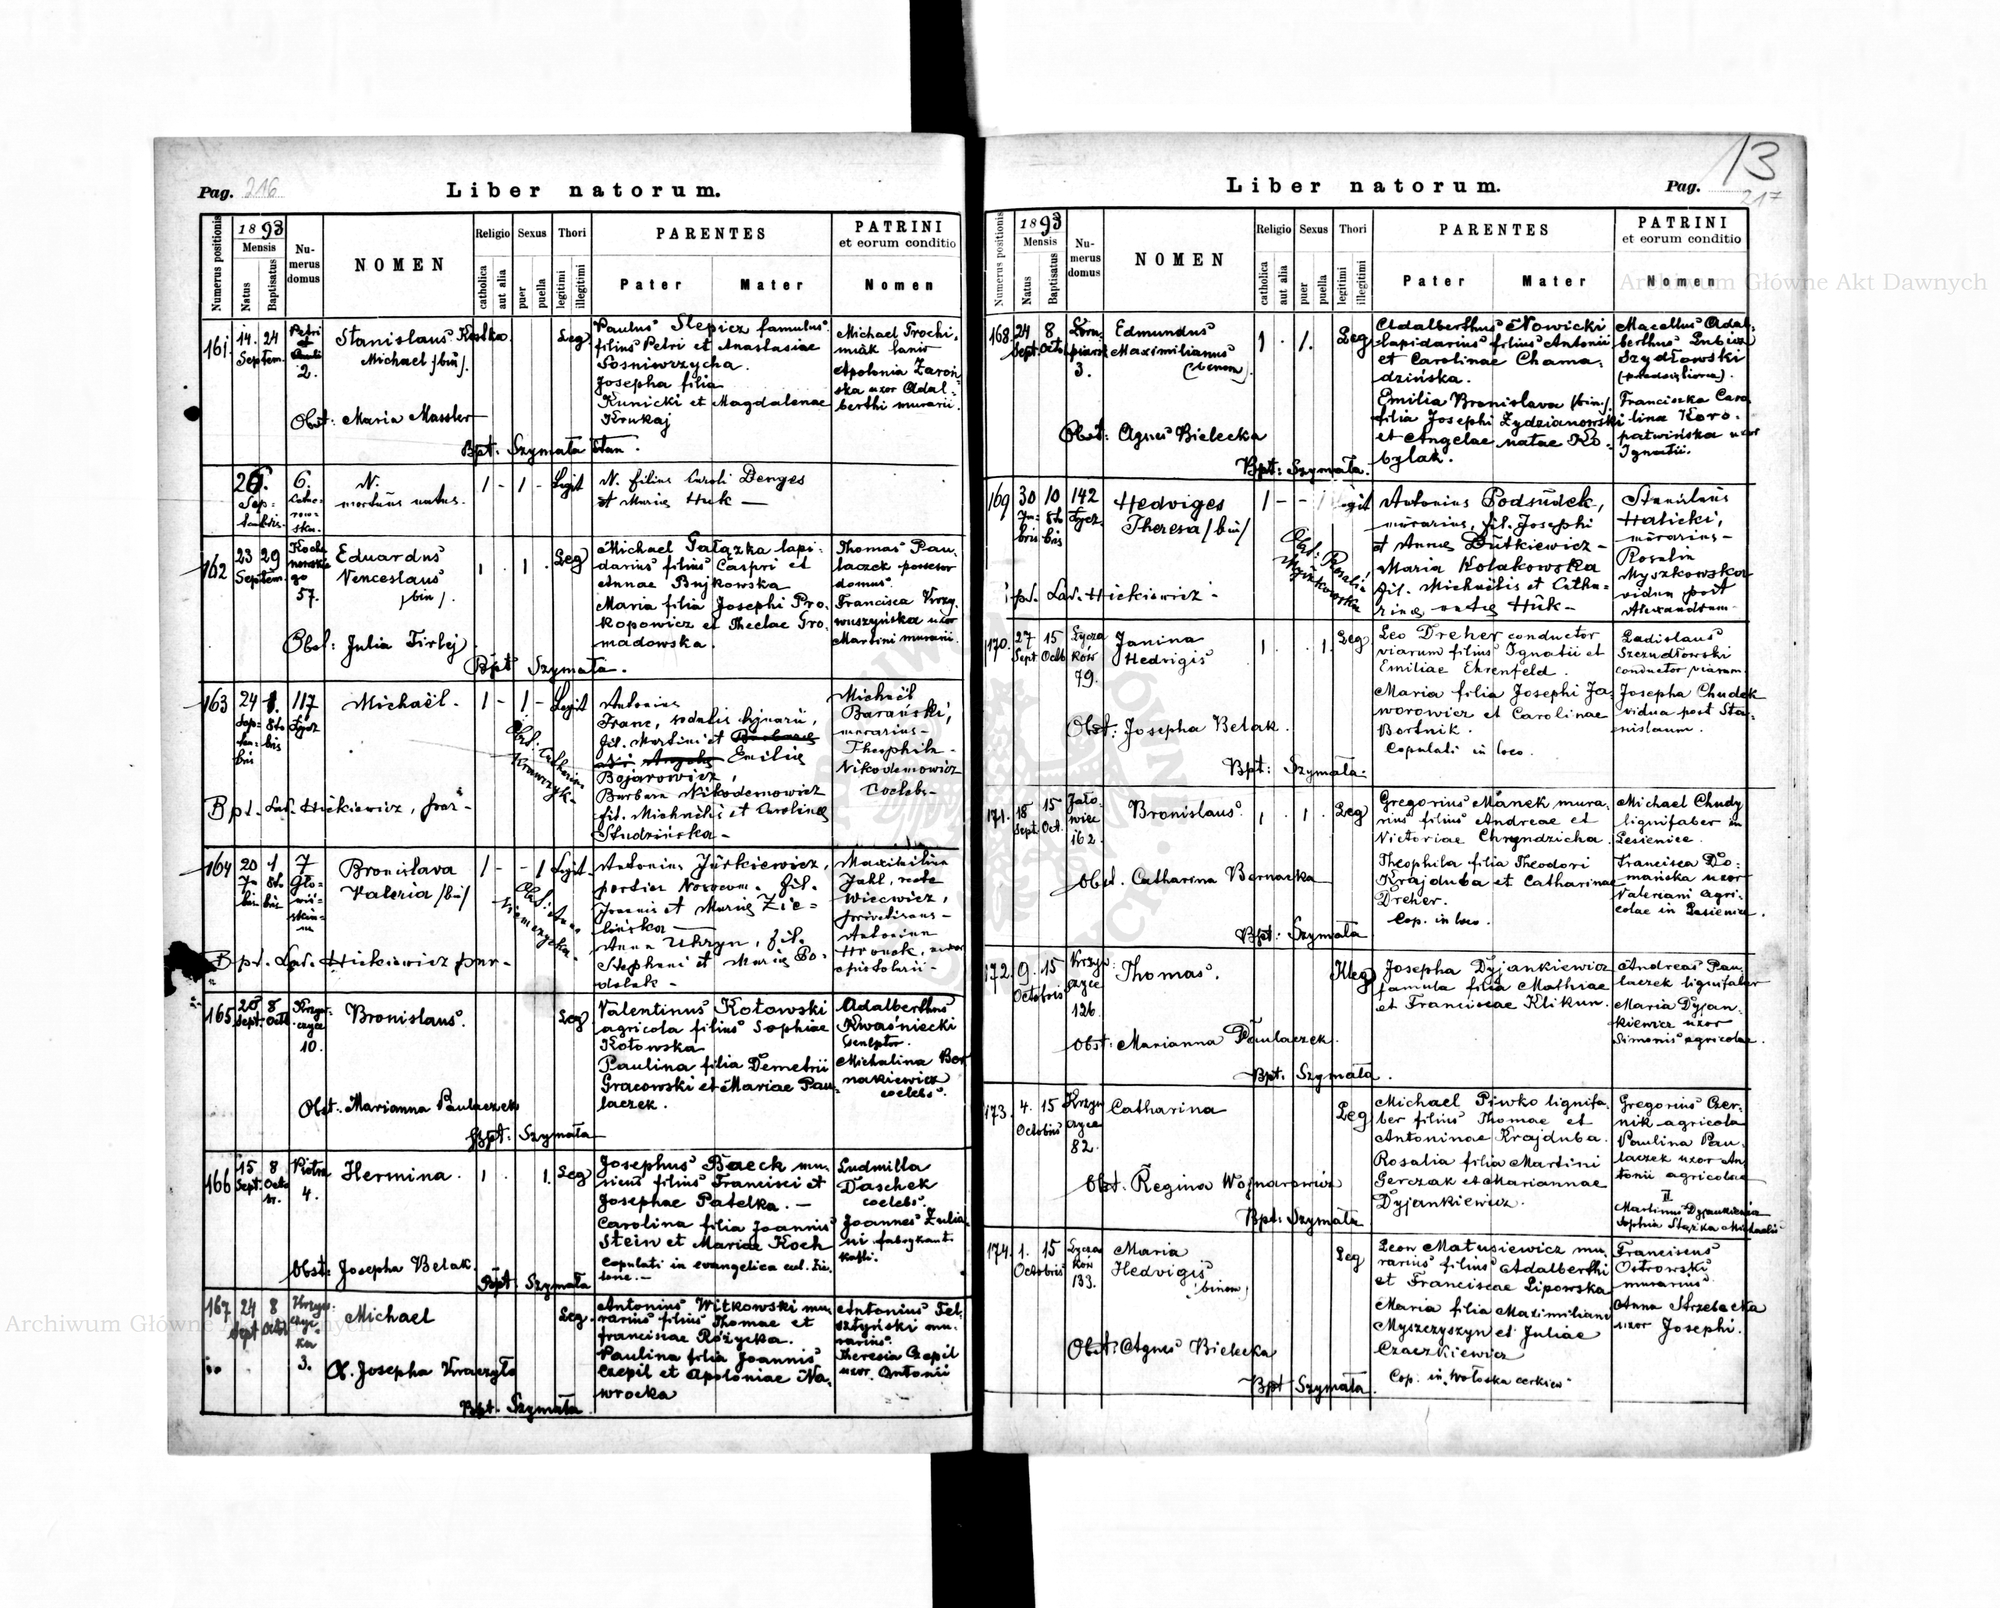 Pag. 216
Liber natorum.
Numerus positionis
1893
Mensis
Natus
Baptisatus
Nu-
merus
domus
NOMEN
Religio
catholica
aut alia
Sexus
puer
puella
Thori
legitimi
illegitimi
PARENTES
Pater
Mater
PATRINI
et eorum conditio
Nomen
161.
14. 24
Septem.
Petri
et
2.
Stanislaus Kostka
Michael /bin/.
Obst: Maria Massler
Leg
Paulus Slepicz famulus
filius Petri et Anastasiae
Sosniwrzycha.
Josepha filia
Kunicki et Magdalenae
Krukaj
Michael Trochi-
miak lanio
Apolonia Zaroń-
ska uxor Adal-
berthi murarii.
Bpt: Szymała Stan.
26.
Sep-
tembris.
6.
N.
mortuus natus.
1 - 1 - Legit
N. filius Caroli Denges
et Mariae Huk —
162
23 29
Septem.
57.
Eduardus
Venceslaus
/bin/.
Obst: Julia Firlej
1 . 1 . Leg
Michael Gałązka lapi-
darius filius Caspri et
Annae Bujkowska
Maria filia Josephi Pro-
kopowicz et Theclae Gro-
madowska.
Thomas Pau-
laczek possesor
domus.
Francisca Krzy-
wuszyńska uxor
Martini murarii.
Bpt Szymała.
163
24 1.
Sep-
tem-
bris
8to
bis
117
Łycz
Michaël.
1 - 1 - Legit
Obst: Catharina
Krawczyk-
Antonius
Franc, sodalis
fil. Martini et Barbara
Emiliae
Bojarowicz,
Barbara Nikodemowicz
fil. Michaëlis et Carolinae
Studzińska-
Michaël
Barański,
murarius-
Theophila-
Nikodemowicz
Coelebs-
Bpt. Lad. Hickiewicz, par-
164
20 1
8to
bris
7
Gło-
wiń-
Bronislava
Valeria /bin/
1 - - 1 Legit
Obst: Anna
Antonius Jurkiewicz,
portier Nosocom. fil.
Joannis et Mariae Zie-
lińska —
Anna Uhryn, fil.
Stephani et Mariae Po-
dolak-
Maximilian
Jahl, recte
Wiecwicz,
Antonina
Hronek, uxor
Bpt. Lad. Hickiewicz par-
165
20 8
Sept. Octb
Krzyw-
czyce
10.
Bronislaus.
Obst: Marianna Paulaczek
Leg
Valentinus Kotowski
agricola filius Sophiae
Kotowska
Paulina filia Demetrii
Gracowski et Mariae Pau-
laczek.
Adalberthus
Kwaśniecki
sculptor.
Michalina Ber-
nakiewicz
coelebs.
Bpt: Szymała
166
15 8
Sept. Octo
br.
Piotra
4.
Hermina.
Obst: Josepha Belak.
1 . . 1. Leg
Josephus Baeck mu-
sicus filius Francisci et
Josephae Patelka. —
Carolina filia Joannis
Stein et Mariae Koch
Copulati in evangelica
Ludmilla
Daschek
coelebs.
Joannes Zulia-
ni fabrykant
kafli.
Bpt: Szymała
167
24 8
Sept Octb
3.
Michael
O. Josepha Kraczyło
Leg.
Antonius Witkowski mu-
rarius filius Thomae et
Franciscae Różycka.
Paulina filia Joannis
Czepil et Apoloniae Na-
wrocka
Antonius Fel-
sztyński mu-
rarius.
Theresia Czepil
uxor. Antonii
Bpt. Szymała
13
Liber natorum.
Pag. 217
Numerus positionis
1893
Mensis
Natus
Baptisatus
Nu-
merus
domus
NOMEN
Religio
catholica
aut alia
Sexus
puer
puella
Thori
legitimi
illegitimi
PARENTES
Pater
Mater
PATRINI
et eorum conditio
Nomen
168.
24 8
Sept. Octo
3.
Edmundus
Maximilianus
(binom).
Obst: Agnes Bielecka
1 . 1. Leg
Adalberthus Nowicki
lapidarius filius Antonii
et Carolinae Chama-
dzińska.
Emilia Bronislava /bin./
filia Josephi Zydzianowski
et Angelae natae Ko-
bylak.
Macellus Adal-
berthus Lubicz
Szydłowski
Franciszka Caro-
lina Koro-
patwińska uxor
Ignatii.
Bpt: Szymała.
169
30 10
8to
bris
142
Łycz.
Hedviges
Theresa /bin/
1 - - 1 Legit
Obst: Rosalia
Myszkowska
Antonius Podsudek,
murarius, fil. Josephi
et Annae Dutkiewicz-
Maria Kolakowska
fil. Michaëlis et Catha-
rinae natae Huk-
Stanislaus
Halicki,
murarius-
Rosalia
Myszkowska
vidua post
Alexandrum-
Bpt. Lad. Hickiewicz-
170.
27 15
Sept. Octb
Łycza
ków
79.
Janina
Hedvigis
Obst: Josepha Belak.
1 . . 1. Leg
Leo Dreher conductor
viarum filius Ignatii et
Emiliae Ehrenfeld.
Maria filia Josephi Ja-
worowicz et Carolinae
Bortnik.
Copulati in loco.
Ladislaus
Szczudłowski
conductor viarum
Josepha Chudek
vidua post Sta-
nislaum.
Bpt: Szymała.
171.
18 15
Sept. Oct.
Jało-
wiec
162.
Bronislaus.
Obst. Catharina Bernacka
1 . 1 . Leg
Gregorius Manek mura-
rius filius Andreae et
Victoriae Chryndzicha.
Theophila filia Theodori
Krajduba et Catharinae
Dreher.
Cop. in loco.
Michael Chudy
lignifaber in
Lesienice.
Francisca Do-
mańska uxor
Valeriani agri-
colae in Lesienice.
Bpt: Szymała
172.
9. 15
Octobris
Krzyw-
czyce
126.
Thomas.
Obst: Marianna Paulaczek.
Illeg
Josepha Dyjankiewicz
famula filia Mathiae
et Franciscae Klikun.
Andreas Pau-
laczek lignifaber
Maria Dyjan-
kiewicz uxor
Simonis agricolae.
Bpt. Szymała.
173.
4. 15
Octobris
Krzyw
czyce
82.
Catharina
Obst. Regina Wojnarowicz
Leg
Michael Piwko lignifa-
ber filius Thomae et
Antoninae Krajduba.
Rosalia filia Martini
Gerczak et Mariannae
Dyjankiewicz.
Gregorius Czer-
nik agricola
Paulina Pau-
laczek uxor An-
tonii agricolae
II
Martinus Dyjankiewicz
Bpt: Szymała
174.
1. 15
Octobris
Łycza
ków
133.
Maria
Hedvigis
(binom)
Obst: Agnes Bielecka
Leg
Leon Matusiewicz mu-
rarius filius Adalberthi
et Franciscae Lipowska
Maria filia Maximiliani
Myszczyszyn et Juliae
Czaczkiewicz
Cop. in Wołoska cerkiew
Franciscus
Ostrowski
murarius
Anna Strzelecka
uxor Josephi.
Bpt Szymała.
Archiwum Główne Akt Dawnych
Archiwum Główne Akt Dawnych